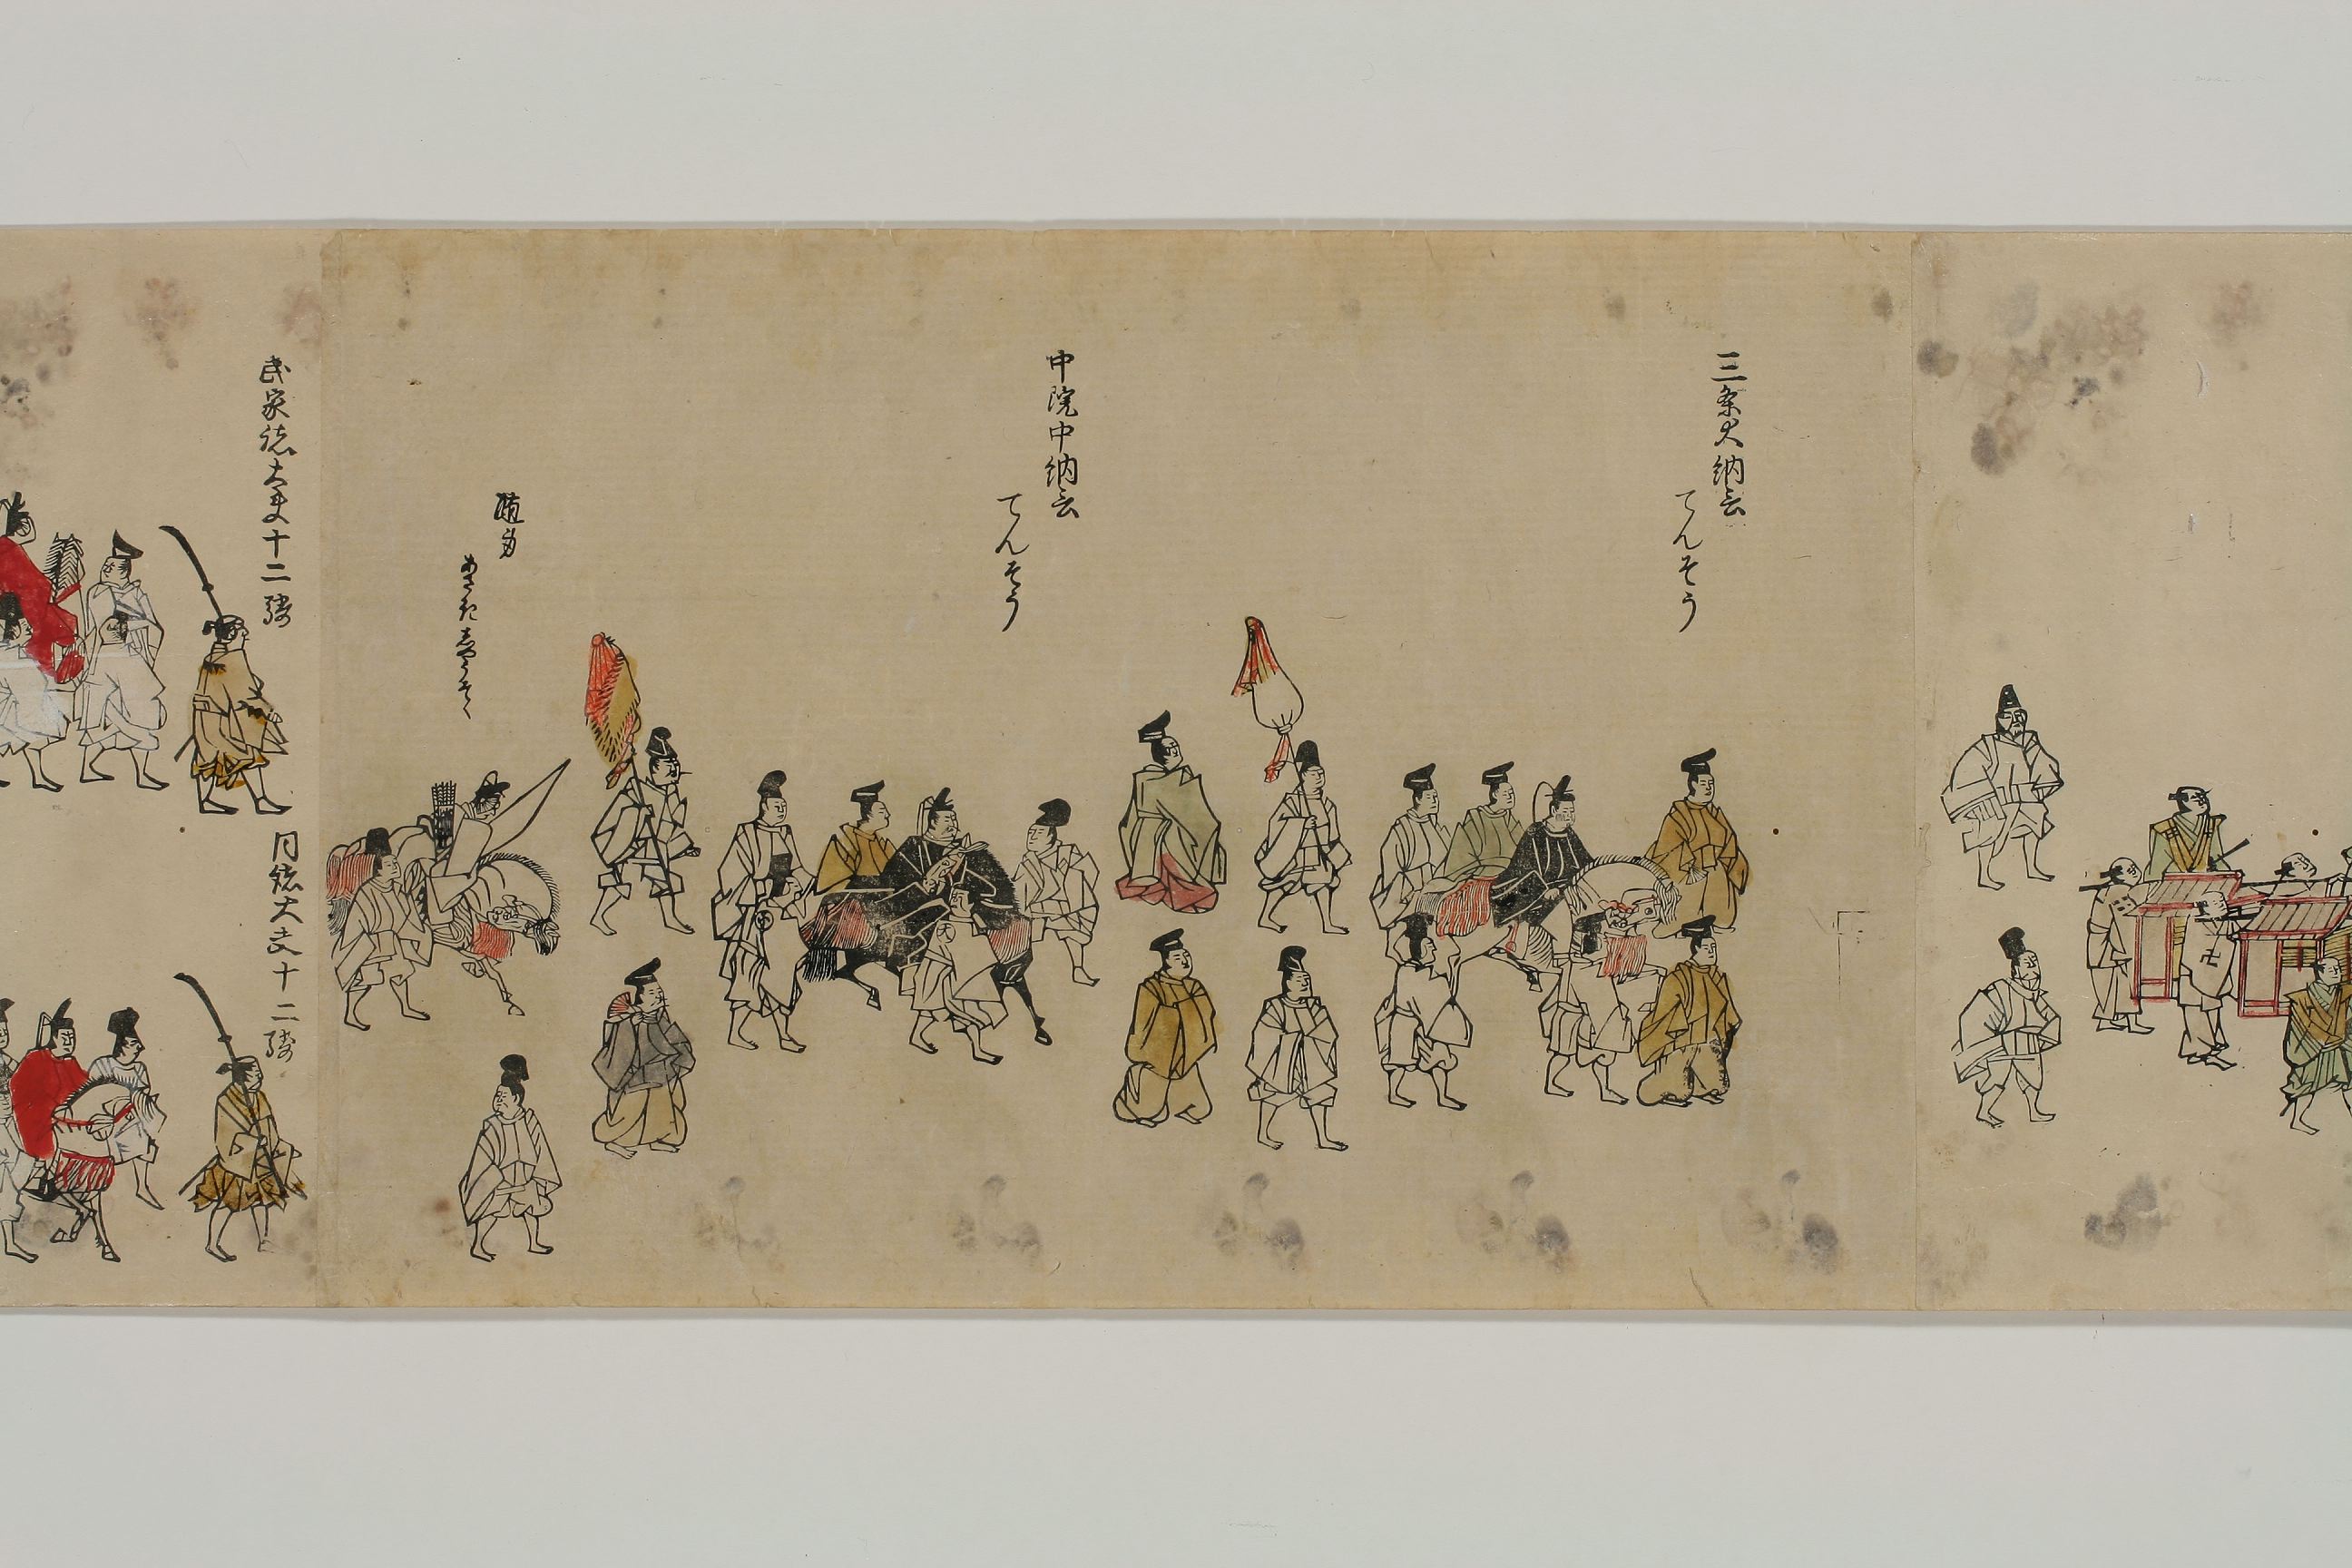 三条大納言
てんそう
中院中納言
てんそう
随身
武家諸大夫十二騎
同諸大夫十二騎